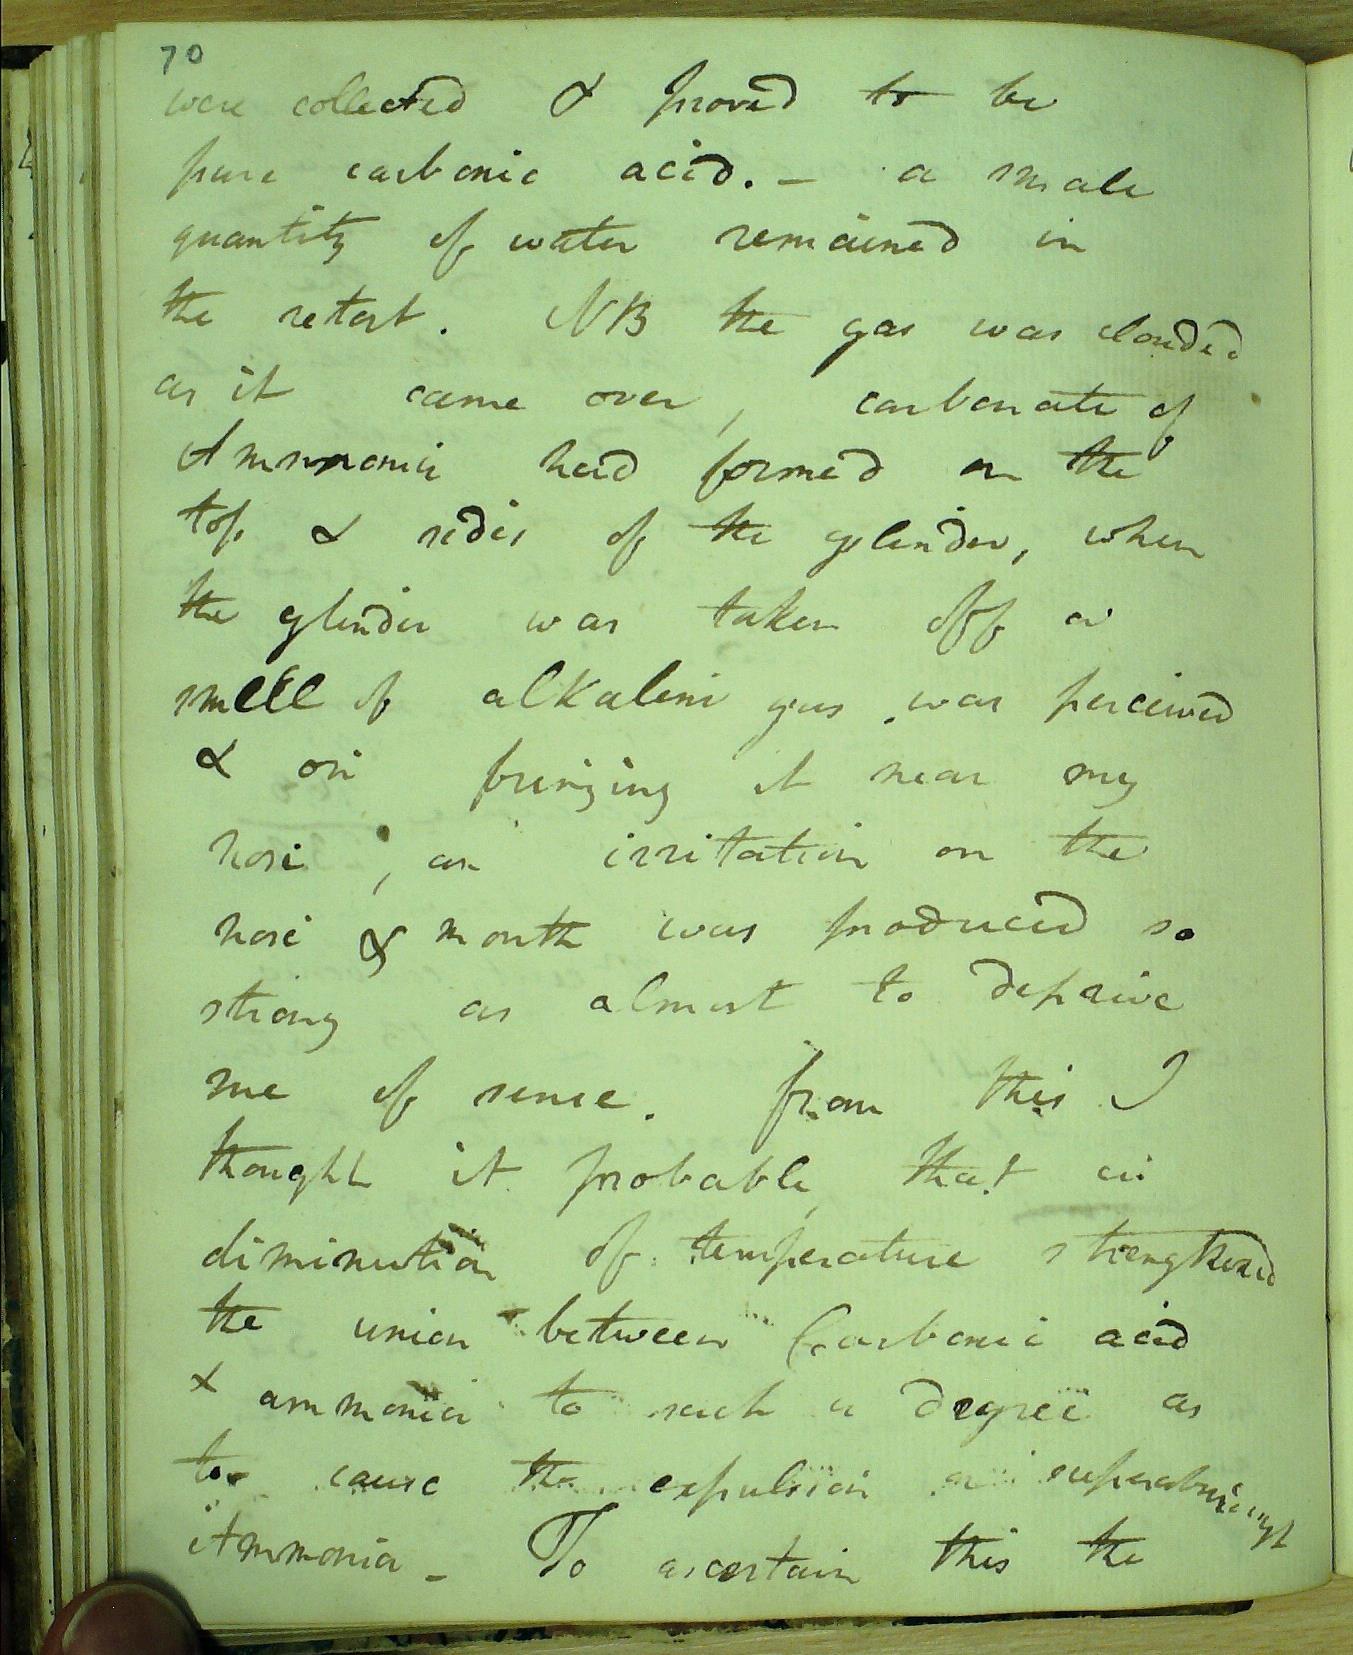 70
were collected & proved to be
pure carbonic acid. - a small
quantity of water remained in
the retort. NB the gas was clouded
as it came over, carbonate of
Ammonia had formed on the
top & sides of the cylinder, when
the cylinder was taken off a
smell of alkaline gas was perceived
& on bringing it near my
nose, an irritation on the
nose & mouth was produced so
strong as almost to deprive
me of sense. from this I
thought it probable that a
diminution of temperature strengthened
the union between Carbonic acid
& ammonia to such a degree as
to cause the expulsion superabundant
Ammonia - To ascertain this the